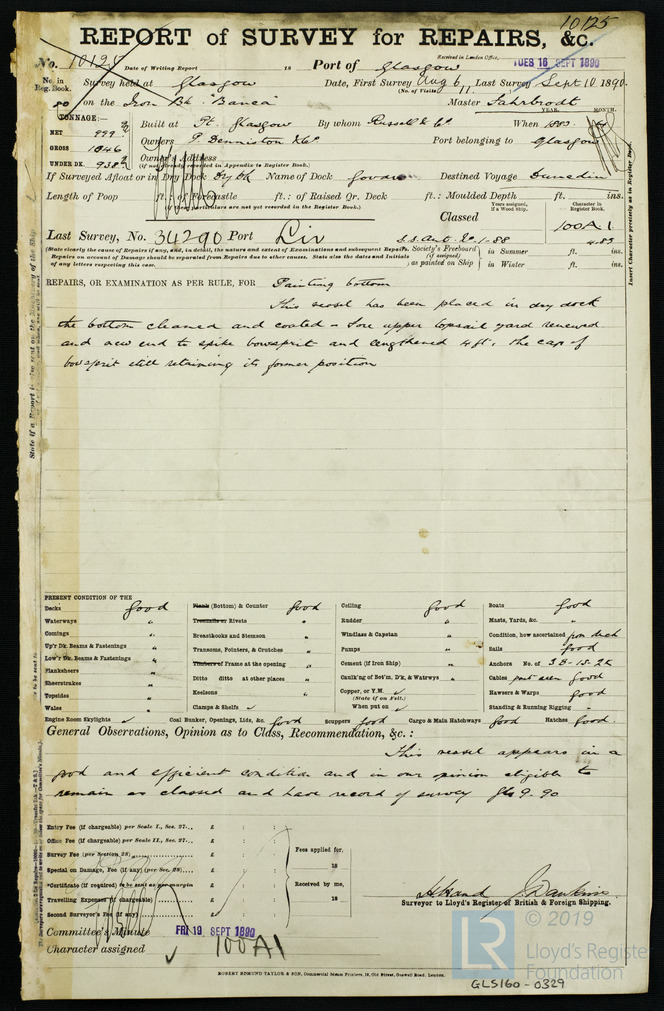 10125
REPORT of SURVEY for REPAIRS, &c.
No. 10125 Date of Writing Report 18 Port of Glasgow Received in London Office, TUES 16 SEPT 1890
No. in Reg. Book. Survey held at Glasgow Date, First Survey Aug 6 Last Survey Sept 10 1890
(No. of Visits) 11
50 on the Iron Bk "Banca" Master Fahrbrodt
TONNAGE:— YEAR. MONTH.
NET 999 Built at Pt. Glasgow By whom Russell & Co When 1883
GROSS 1046 Owners P. Denniston & Co. Port belonging to Glasgow
UNDER DK. 938 Owners' Address
(if not already recorded in Appendix to Register Book.)
If Surveyed Afloat or in Dry Dock Dry Dk Name of Dock Govan Destined Voyage Dunedin
Length of Poop ft.: of Forecastle ft.: of Raised Qr. Deck ft.: Moulded Depth ft. ins.
(If these particulars are not yet recorded in the Register Book.)
Years assigned, if a Wood ship. Character in Register Book.
Classed 100A1
Last Survey, No. 34290 Port Liv 4.83
(State clearly the cause of Repairs if any, and, in detail, the nature and extent of Examinations and subsequent Repairs.
Repairs on account of Damage should be separated from Repairs due to other causes. State also the dates and Initials
of any letters respecting this case.
Society's Freeboard (if assigned) as painted on Ship in Summer ft. ins.
in Winter ft. ins.
REPAIRS, OR EXAMINATION AS PER RULE, FOR Painting bottom
This vessel has been placed in dry dock
the bottom cleaned and coated – Fore upper topsail yard renewed
and new end to spike bowsprit and lengthened 4 ft. the cap of
bowsprit still retaining its former position
PRESENT CONDITION OF THE
Decks good
Waterways "
Comings "
Up'r Dk. Beams & Fastenings "
Low'r Dk. Beams & Fastenings "
Planksheers "
Sheerstrakes "
Topsides "
Wales "
Engine Room Skylights ✓
Plank (Bottom) & Counter good
Treenails or Rivets "
Breasthooks and Stemson "
Transoms, Pointers, & Crutches "
Timbers or Frame at the opening "
Ditto ditto at other places "
Keelsons "
Clamps & Shelfs ✓
Coal Bunker, Openings, Lids, &c. good
Ceiling good
Rudder "
Windlass & Capstan "
Pumps "
Cement (if Iron Ship) "
Caulk'ng of Bot'm, D'k, & Watrwys "
Copper, or Y.M. ✓
(State if on Felt.)
When put on ✓
Scuppers good Cargo & Main Hatchways good Hatches good
Boats good
Masts, Yards, &c. "
Condition, how ascertained from deck
Sails good
Anchors No. of 3B–1S–2K
Cables part seen good
Hawsers & Warps good
Standing & Running Rigging "
General Observations, Opinion as to Class, Recommendation, &c. :
This vessel appears in a
good and efficient condition and in our opinion eligible to
remain as classed and have record of survey Gls 9.90
Entry Fee (if chargeable) per Scale I., Sec. 27... £ : :
Office Fee (if chargeable) per Scale II., Sec. 27... £ : :
Survey Fee (per Section 28) £ : :
Special on Damage, Fee (if any) (per Sec. 28) £ : :
*Certificate (if required) to be sent as per margin £ : :
Travelling Expenses (if chargeable) £ : :
Second Surveyor's Fee (if any) £ : :
Fees applied for,
18
Received by me,
18
Surveyor to Lloyd's Register of British & Foreign Shipping.
Committee's Minute FRI 19 SEPT 1890
Character assigned 100A1
© 2019
LR Lloyd's Register
Foundation
ROBERT EDMUND TAYLOR & SON, Commercial Steam Printers, 19, Old Street, Goswell Road, London.
GLS160-0329
Insert Character precisely as in Register Book.